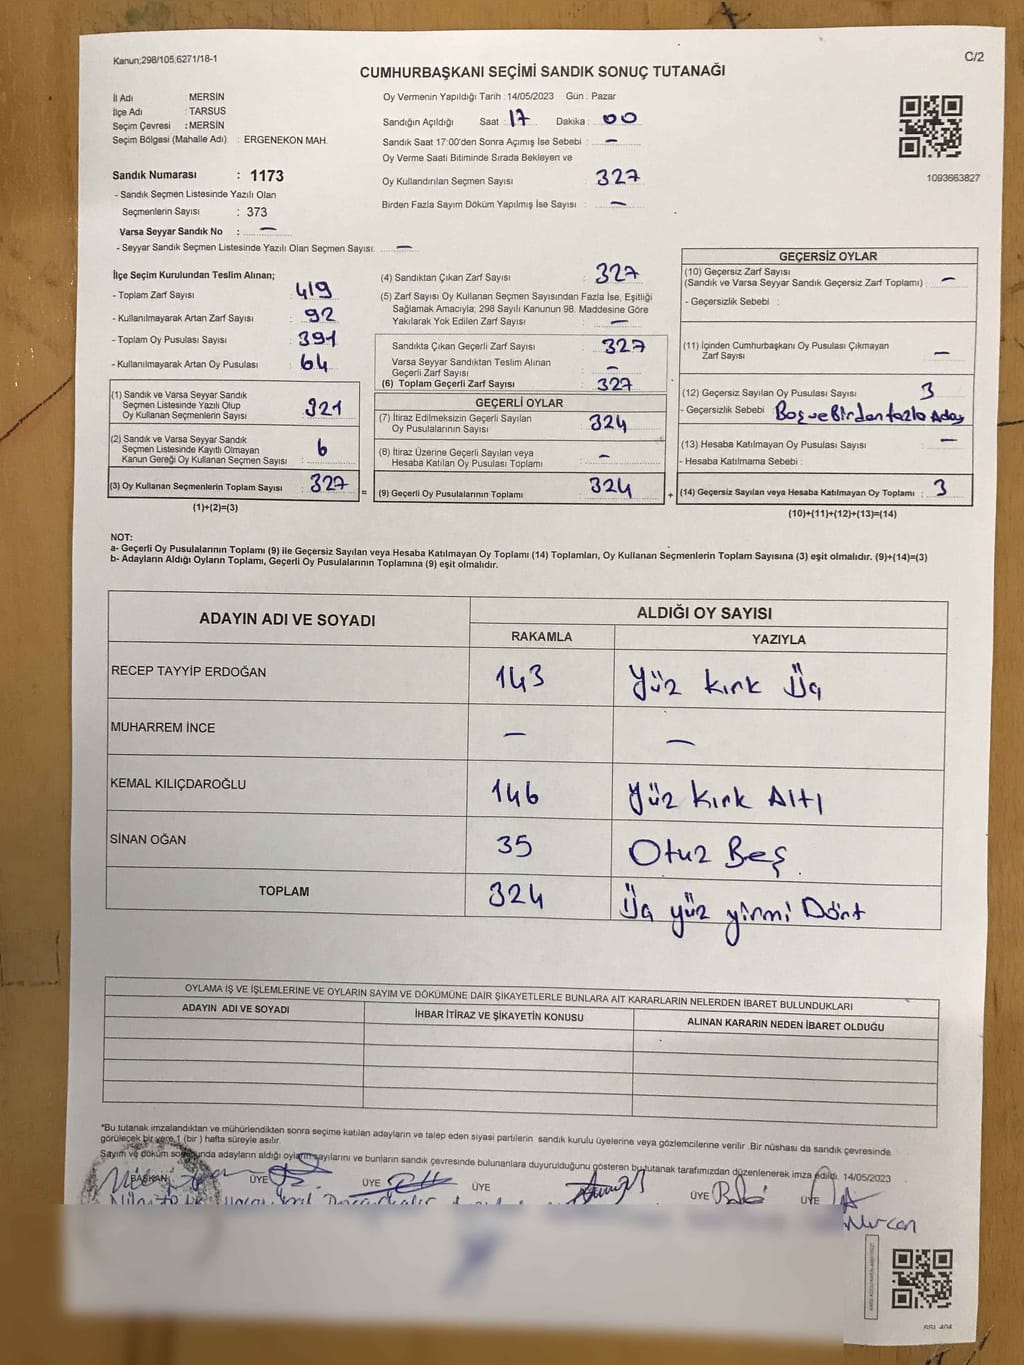 Kanun;298/105,6271/18-1
C/2
CUMHURBAŞKANI SEÇİMİ SANDIK SONUÇ TUTANAĞI
İl Adı : MERSİN
İlçe Adı : TARSUS
Seçim Çevresi : MERSİN
Seçim Bölgesi (Mahalle Adı) : ERGENEKON MAH.
Oy Vermenin Yapıldığı Tarih : 14/05/2023 Gün : Pazar
Sandığın Açıldığı Saat : 17 Dakika : 00
Sandık Saat 17:00'den Sonra Açımış İse Sebebi : —
Oy Verme Saati Bitiminde Sırada Bekleyen ve
Oy Kullandırılan Seçmen Sayısı : 327
Birden Fazla Sayım Döküm Yapılmış İse Sayısı : —
1093663827
Sandık Numarası : 1173
- Sandık Seçmen Listesinde Yazılı Olan
Seçmenlerin Sayısı : 373
Varsa Seyyar Sandık No : —
- Seyyar Sandık Seçmen Listesinde Yazılı Olan Seçmen Sayısı: —
İlçe Seçim Kurulundan Teslim Alınan;
- Toplam Zarf Sayısı : 419
- Kullanılmayarak Artan Zarf Sayısı : 92
- Toplam Oy Pusulası Sayısı : 391
- Kullanılmayarak Artan Oy Pusulası : 64
(1) Sandık ve Varsa Seyyar Sandık
Seçmen Listesinde Yazılı Olup
Oy Kullanan Seçmenlerin Sayısı : 321
(2) Sandık ve Varsa Seyyar Sandık
Seçmen Listesinde Kayıtlı Olmayan
Kanun Gereği Oy Kullanan Seçmen Sayısı : 6
(3) Oy Kullanan Seçmenlerin Toplam Sayısı : 327
(1)+(2)=(3)
(4) Sandıktan Çıkan Zarf Sayısı : 327
(5) Zarf Sayısı Oy Kullanan Seçmen Sayısından Fazla İse, Eşitliği
Sağlamak Amacıyla; 298 Sayılı Kanunun 98. Maddesine Göre
Yakılarak Yok Edilen Zarf Sayısı : —
Sandıkta Çıkan Geçerli Zarf Sayısı : 327
Varsa Seyyar Sandıktan Teslim Alınan
Geçerli Zarf Sayısı : —
(6) Toplam Geçerli Zarf Sayısı : 327
GEÇERLİ OYLAR
(7) İtiraz Edilmeksizin Geçerli Sayılan
Oy Pusulalarının Sayısı : 324
(8) İtiraz Üzerine Geçerli Sayılan veya
Hesaba Katılan Oy Pusulası Toplamı : —
= (9) Geçerli Oy Pusulalarının Toplamı : 324 +
GEÇERSİZ OYLAR
(10) Geçersiz Zarf Sayısı
(Sandık ve Varsa Seyyar Sandık Geçersiz Zarf Toplamı) : —
- Geçersizlik Sebebi :
(11) İçinden Cumhurbaşkanı Oy Pusulası Çıkmayan
Zarf Sayısı : —
(12) Geçersiz Sayılan Oy Pusulası Sayısı : 3
- Geçersizlik Sebebi : Boş ve Birden fazla Aday
(13) Hesaba Katılmayan Oy Pusulası Sayısı : —
- Hesaba Katılmama Sebebi :
(14) Geçersiz Sayılan veya Hesaba Katılmayan Oy Toplamı : 3
(10)+(11)+(12)+(13)=(14)
NOT:
a- Geçerli Oy Pusulalarının Toplamı (9) ile Geçersiz Sayılan veya Hesaba Katılmayan Oy Toplamı (14) Toplamları, Oy Kullanan Seçmenlerin Toplam Sayısına (3) eşit olmalıdır. (9)+(14)=(3)
b- Adayların Aldığı Oyların Toplamı, Geçerli Oy Pusulalarının Toplamına (9) eşit olmalıdır.
ADAYIN ADI VE SOYADI
ALDIĞI OY SAYISI
RAKAMLA YAZIYLA
RECEP TAYYİP ERDOĞAN 143 Yüz Kırk Üç
MUHARREM İNCE — —
KEMAL KILIÇDAROĞLU 146 Yüz Kırk Altı
SİNAN OĞAN 35 Otuz Beş
TOPLAM 324 Üç yüz yirmi Dört
OYLAMA İŞ VE İŞLEMLERİNE VE OYLARIN SAYIM VE DÖKÜMÜNE DAİR ŞİKAYETLERLE BUNLARA AİT KARARLARIN NELERDEN İBARET BULUNDUKLARI
ADAYIN ADI VE SOYADI İHBAR İTİRAZ VE ŞİKAYETİN KONUSU ALINAN KARARIN NEDEN İBARET OLDUĞU
*Bu tutanak imzalandıktan ve mühürlendikten sonra seçime katılan adayların ve talep eden siyasi partilerin sandık kurulu üyelerine veya gözlemcilerine verilir .Bir nüshası da sandık çevresinde
görülecek bir yere 1 (bir ) hafta süreyle asılır.
Sayım ve döküm sonunda adayların aldığı oyların sayılarını ve bunların sandık çevresinde bulunanlara duyurulduğunu gösteren bu tutanak tarafımızdan düzenlenerek imza edildi. 14/05/2023
BAŞKAN ÜYE ÜYE ÜYE ÜYE ÜYE